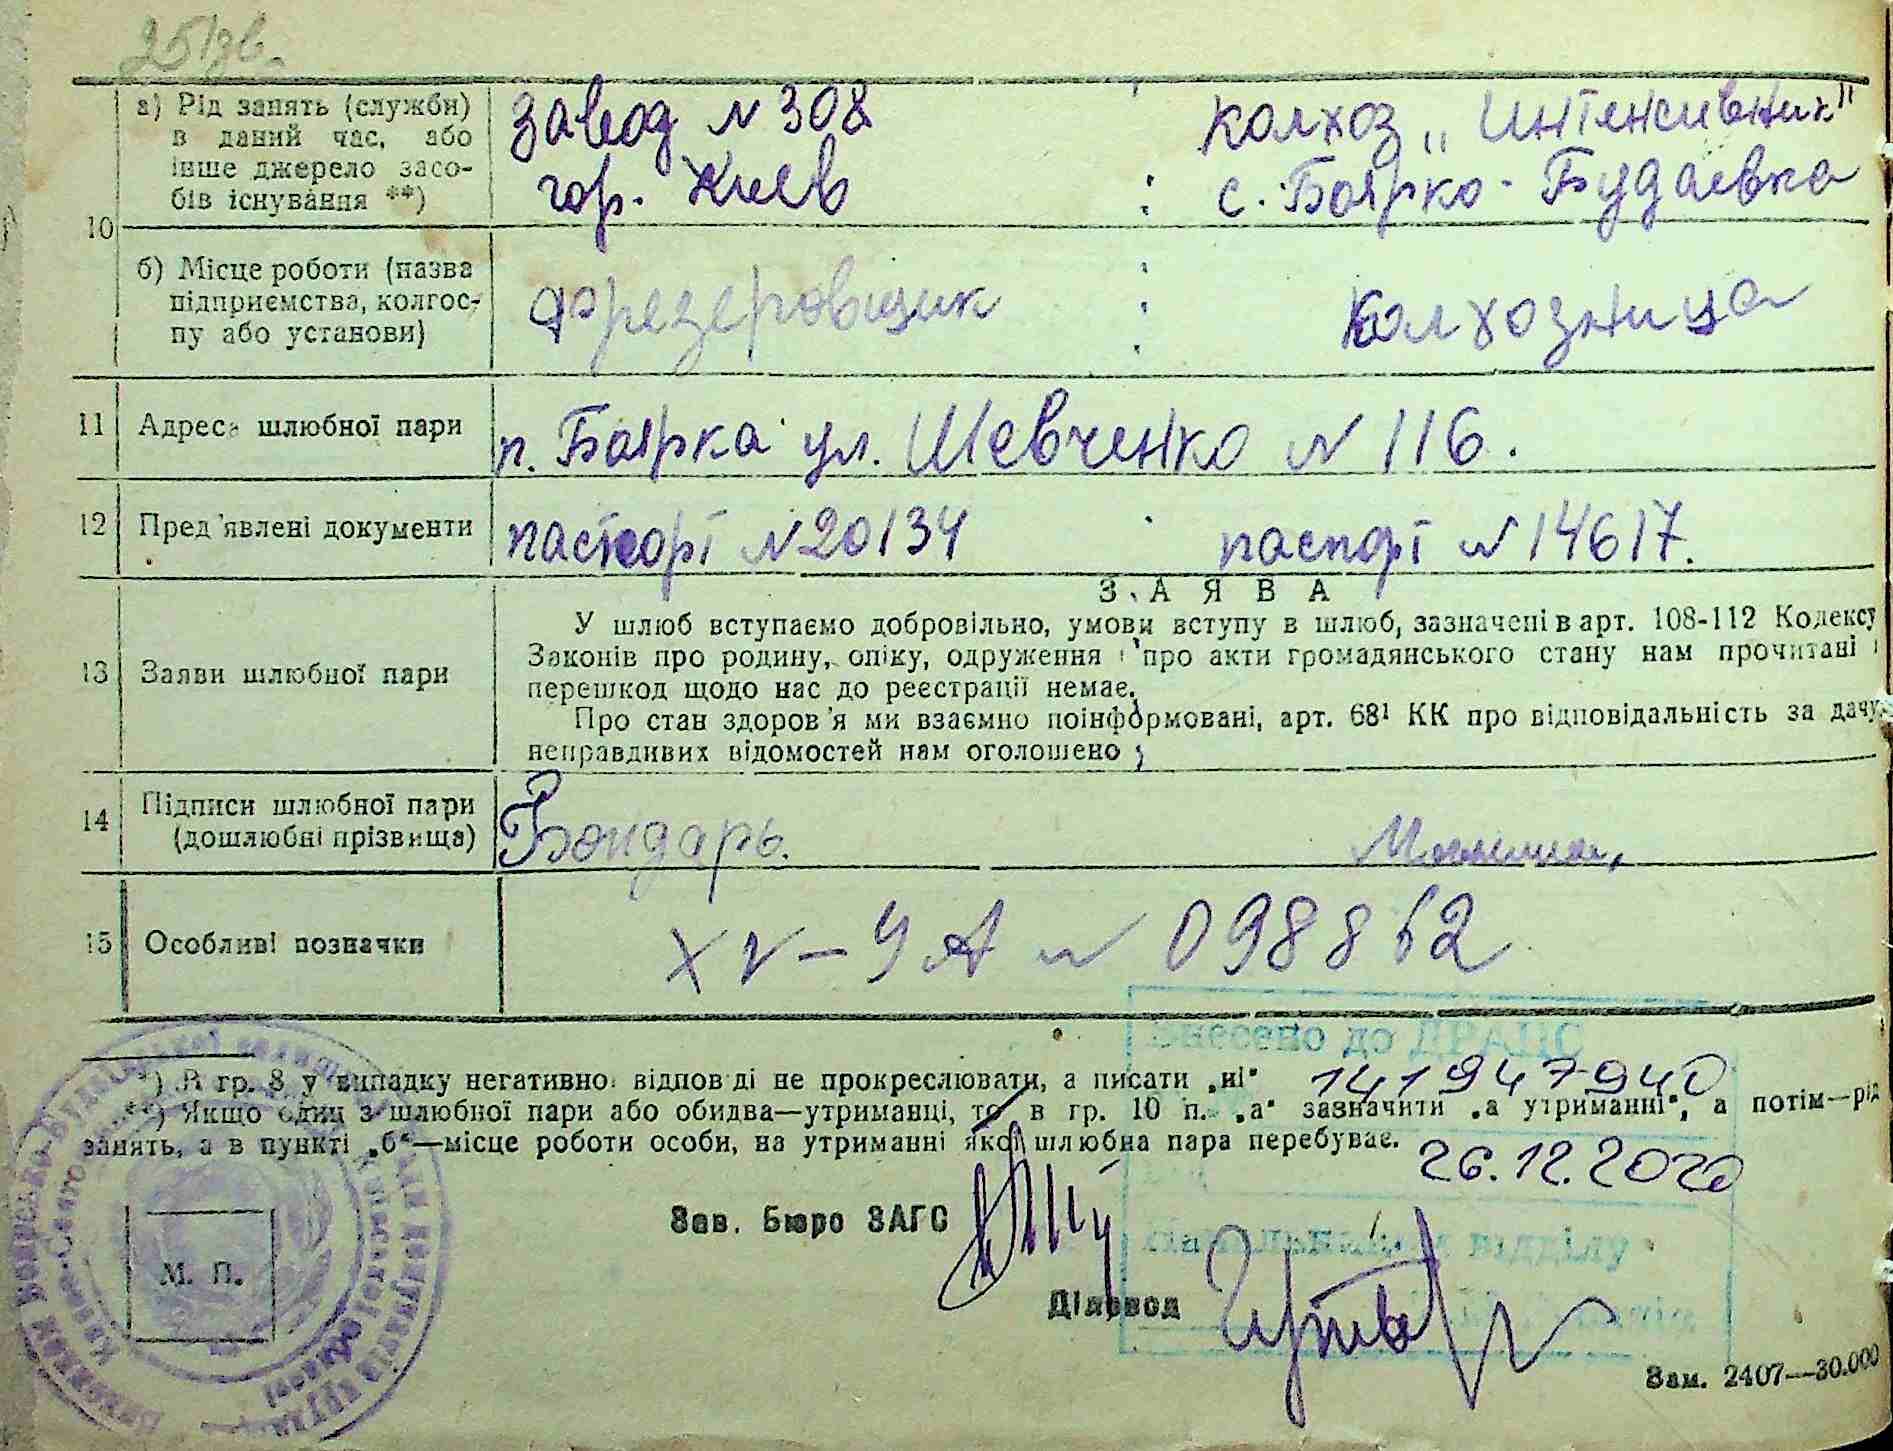 251зв.
а) Рід занять (служби)
в даний час, або
інше джерело засо-
бів існування **)
завод N 308
гор. Киев
колхоз „Интенсивник"
с. Боярко-Будаевка
10
б) Місце роботи (назва
підприємства, колгос-
пу або установи)
Фрезеровщик
Колхозница
11 Адреса шлюбної пари
п. Боярка ул. Шевченко N 116.
12 Пред'явлені документи
паспорт N 20134
паспорт N 14617.
13 Заяви шлюбної пари
ЗАЯВА
У шлюб вступаємо добровільно, умови вступу в шлюб, зазначені в арт. 108-112 Кодексу
Законів про родину, опіку, одруження і про акти громадянського стану нам прочитані і
перешкод щодо нас до реєстрації немає.
Про стан здоров'я ми взаємно поінформовані, арт. 68¹ КК про відповідальність за дачу
неправдивих відомостей нам оголошено
14 Підписи шлюбної пари
(дошлюбні прізвища)
Бондарь.
15 Особливі позначки
XV-ЧА N 098862
Внесено до ДРАЦС
*) В гр. 8 у випадку негативної відповіді не прокреслювати, а писати „ні"
14194794 0
**) Якщо один з шлюбної пари або обидва—утриманці, то в гр. 10 п. „а" зазначити „а утриманні", а потім—рід
занять, а в пункті „б"—місце роботи особи, на утриманні якої шлюбна пара перебуває.
26.12.2020
Зав. Бюро ЗАГС
Начальник відділу
М. П.
Діловод
Зам. 2407—30.000